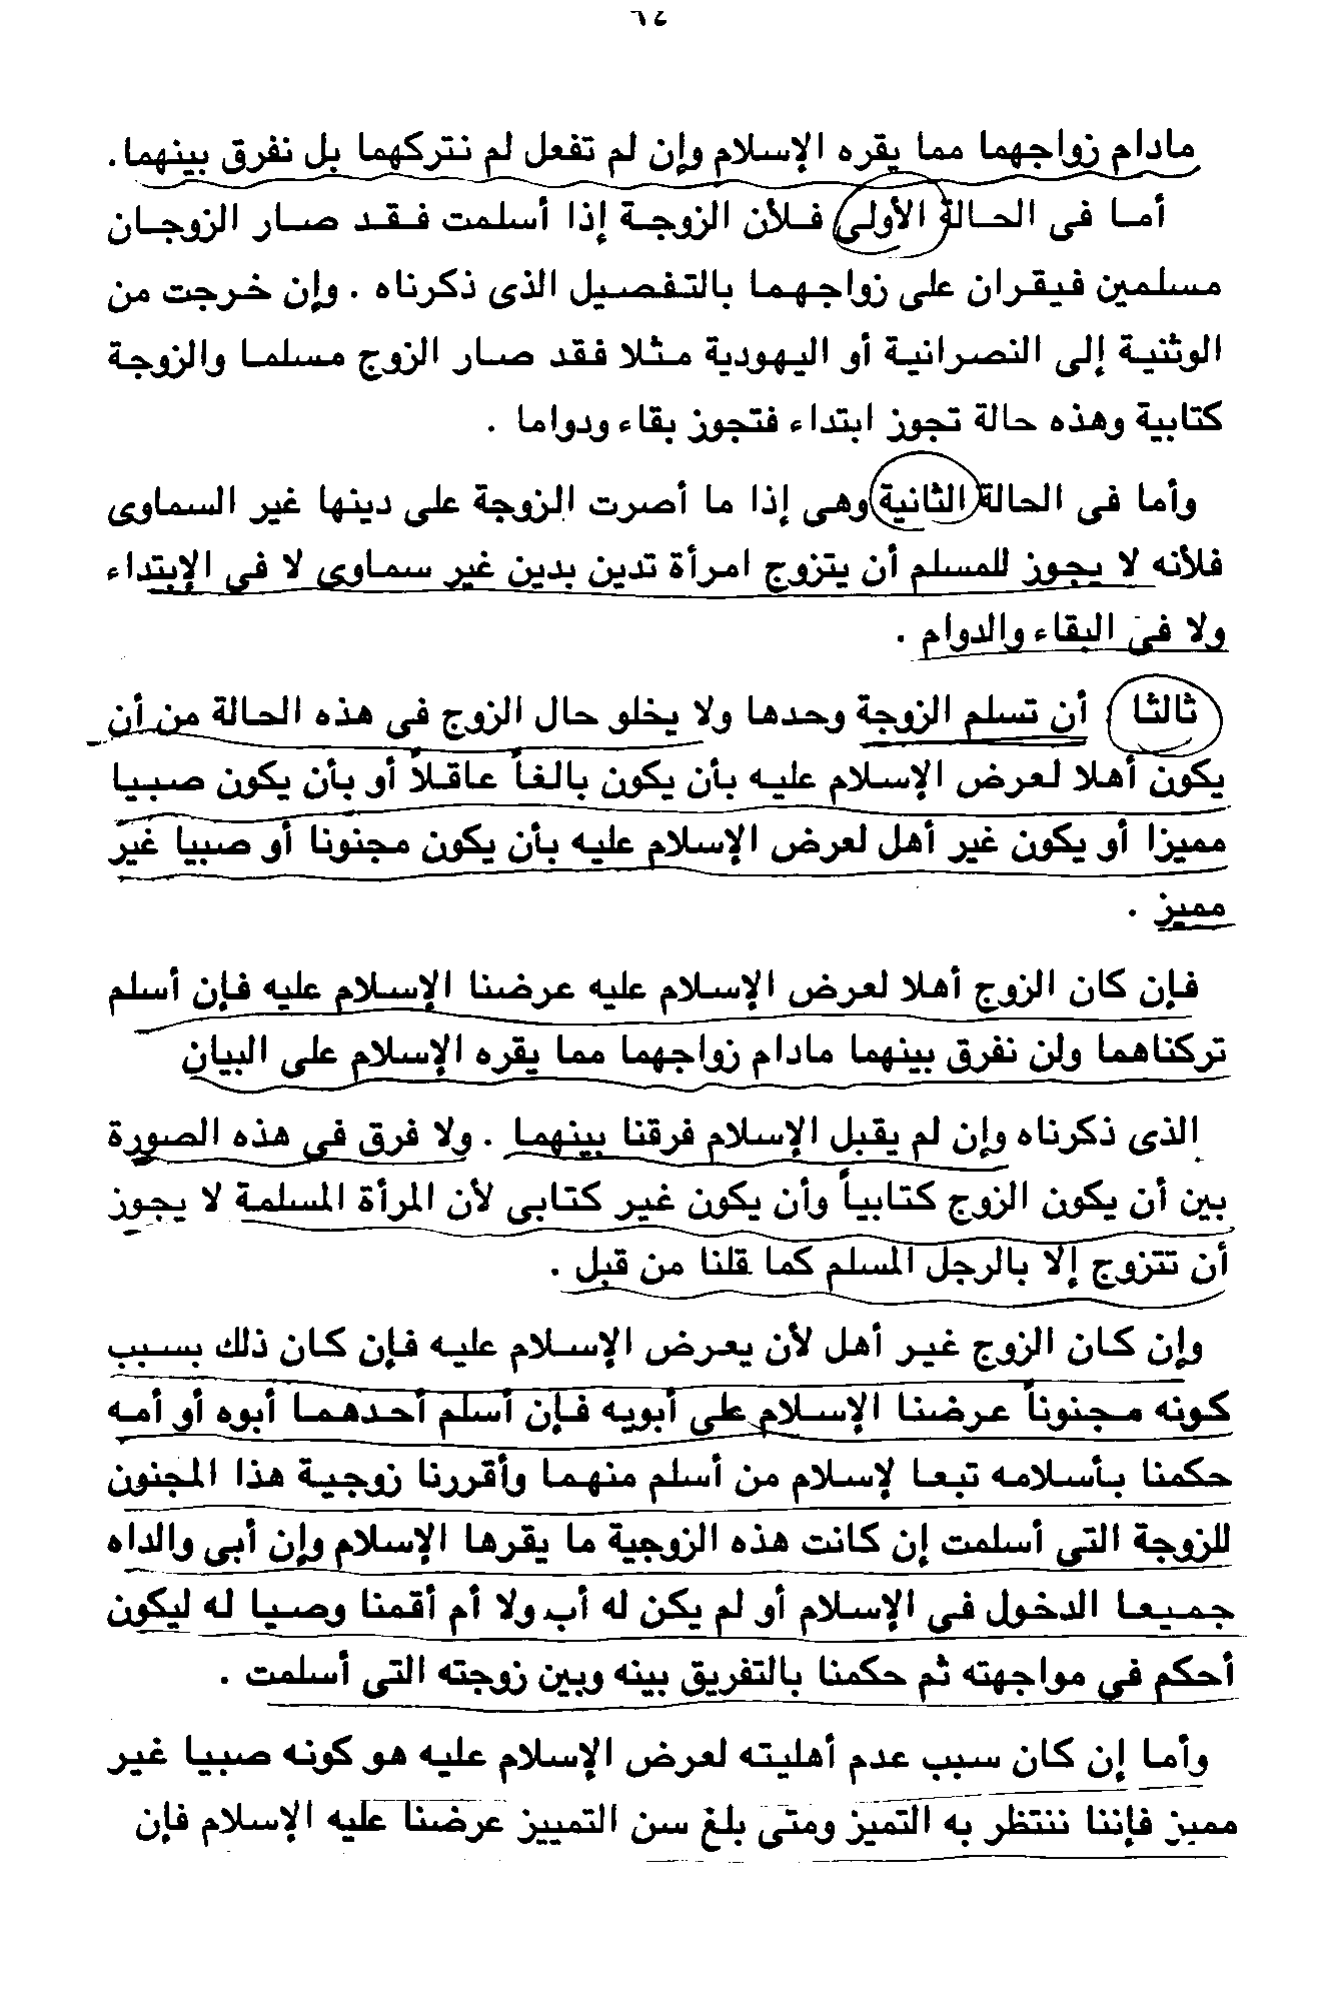 ٦٤
مادام زواجهما مما يقره الإسلام وإن لم تفعل لم نتركهما بل نفرق بينهما .
أما فى الحالة الأولى فلأن الزوجة إذا أسلمت فقد صار الزوجان
مسلمين فيقران على زواجهما بالتفصيل الذى ذكرناه . وإن خرجت من
الوثنية إلى النصرانية أو اليهودية مثلا فقد صار الزوج مسلما والزوجة
كتابية وهذه حالة تجوز ابتداء فتجوز بقاء ودواما .
وأما فى الحالة الثانية وهى إذا ما أصرت الزوجة على دينها غير السماوى
فلأنه لا يجوز للمسلم أن يتزوج امرأة تدين بدين غير سماوى لا فى الإبتداء
ولا فى البقاء والدوام .
ثالثا أن تسلم الزوجة وحدها ولا يخلو حال الزوج فى هذه الحالة من أن
يكون أهلا لعرض الإسلام عليه بأن يكون بالغاً عاقلاً أو بأن يكون صبيا
مميزا أو يكون غير أهل لعرض الإسلام عليه بأن يكون مجنونا أو صبيا غير
مميز .
فإن كان الزوج أهلا لعرض الإسلام عليه عرضنا الإسلام عليه فإن أسلم
تركناهما ولن نفرق بينهما مادام زواجهما مما يقره الإسلام على البيان
الذى ذكرناه وإن لم يقبل الإسلام فرقنا بينهما . ولا فرق فى هذه الصورة
بين أن يكون الزوج كتابياً وأن يكون غير كتابى لأن المرأة المسلمة لا يجوز
أن تتزوج إلا بالرجل المسلم كما قلنا من قبل .
وإن كان الزوج غير أهل لأن يعرض الإسلام عليه فإن كان ذلك بسبب
كونه مجنوناً عرضنا الإسلام على أبويه فإن أسلم أحدهما أبوه أو أمه
حكمنا بأسلامه تبعا لإسلام من أسلم منهما وأقررنا زوجية هذا المجنون
للزوجة التى أسلمت إن كانت هذه الزوجية ما يقرها الإسلام وإن أبى والداه
جميعا الدخول فى الإسلام أو لم يكن له أب ولا أم أقمنا وصيا له ليكون
أحكم في مواجهته ثم حكمنا بالتفريق بينه وبين زوجته التى أسلمت .
وأما إن كان سبب عدم أهليته لعرض الإسلام عليه هو كونه صبيا غير
مميز فإننا ننتظر به التميز ومتى بلغ سن التمييز عرضنا عليه الإسلام فإن